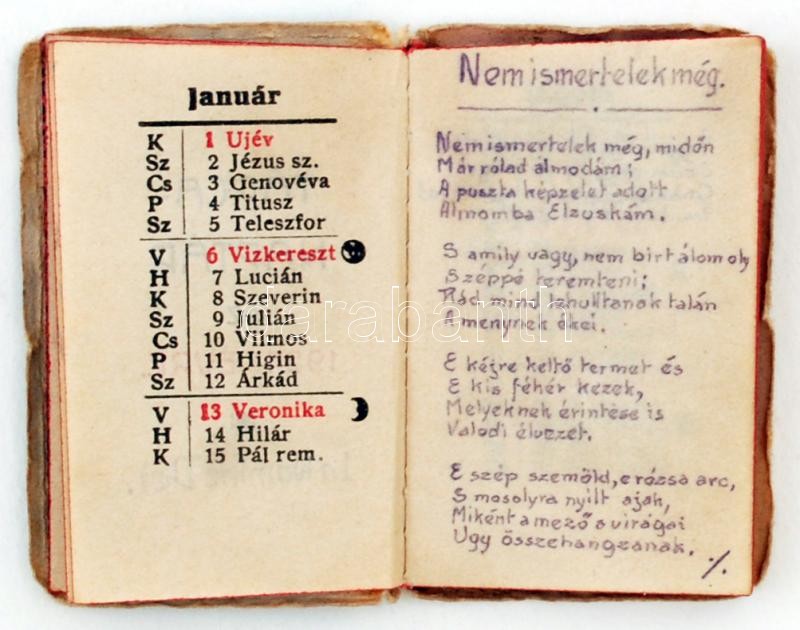 Január
K 1 Ujév
Sz 2 Jézus sz.
Cs 3 Genovéva
P 4 Titusz
Sz 5 Teleszfor
V 6 Vizkereszt
H 7 Lucián
K 8 Szeverin
Sz 9 Julián
Cs 10 Vilmos
P 11 Higin
Sz 12 Árkád
V 13 Veronika
H 14 Hilár
K 15 Pál rem.
Nem ismertelek még.
Nem ismertelek még, midőn
Már rólad álmodám;
A puszta képzelet adott
Álmomba Elzuskám.
S amily vagy, nem birt álom oly
Széppé teremteni;
Rád mind lehulltanak talán
A menynek ékei.
E kéjre keltő termet és
E kis fehér kezek,
Melyeknek érintése is
Valodi élvezet.
E szép szemöld, e rózsa arc,
S mosolyra nyilt ajak,
Miként a mező s virágai
Ugy összehangzanak.
./.
darabanth